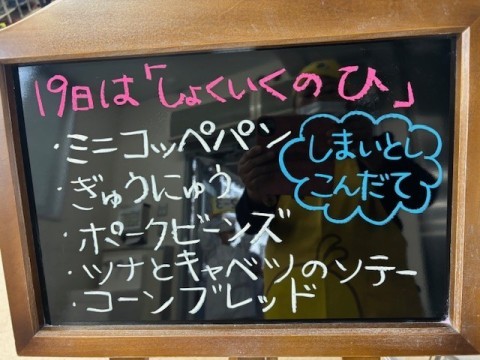 19日は「しょくいくのひ」
・ミニコッペパン
しまいとし
こんだて
・ぎゅうにゅう
・ポークビーンズ
・ツナとキャベツのソテー
・コーンブレッド